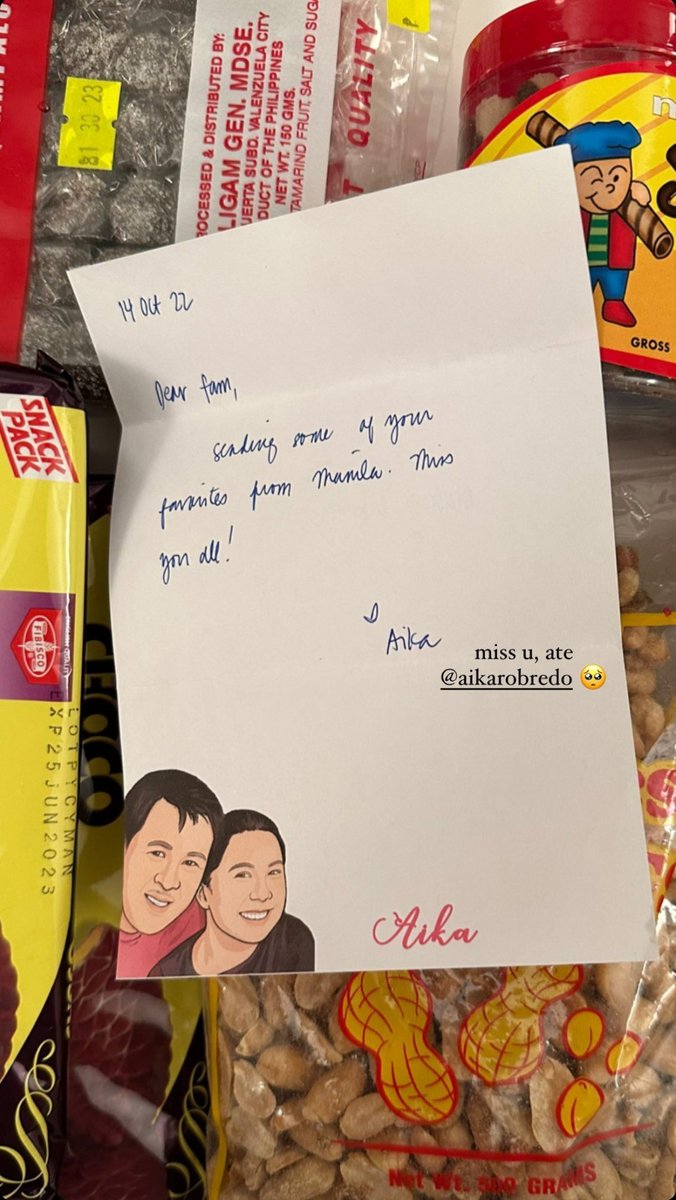 01 30 23
ROCESSED & DISTRIBUTED BY:
LIGAM GEN. MDSE.
UERTA SUBD. VALENZUELA CITY
DUCT OF THE PHILIPPINES
NET WT. 150 GMS.
TAMARIND FRUIT, SALT AND SUG
QUALITY
GROSS
14 Oct 22
Dear fam,
sending some of your
favorites from Manila. Miss
you all!
Aika
miss u, ate
@aikarobredo 🥺
SNACK
PACK
FIBISCO
LOTPYCYMAN
EXP25JUN2023
CHOCO
Aika
Net Wt. 500 GRAMS